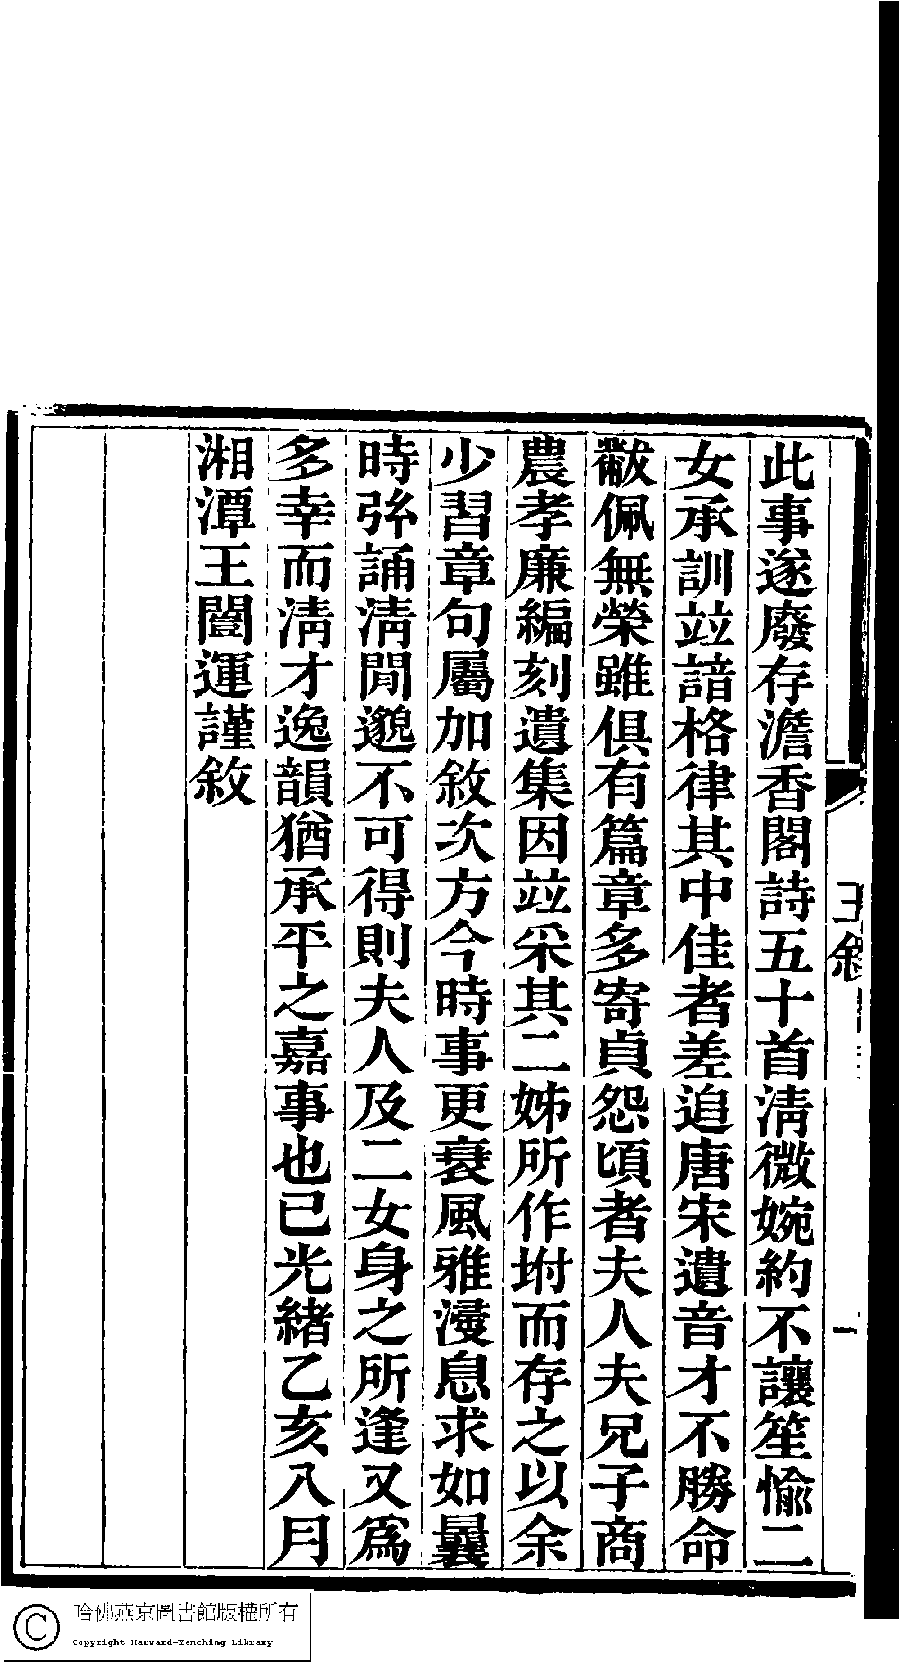 此事遂廢存澹香閣詩五十首淸微婉約不讓笙愉二
女承訓竝諳格律其中佳者差追唐宋遺音才不勝命
黻佩無榮雖俱有篇章多寄貞怨頃者夫人夫兄子商
農孝廉編刻遺集因竝采其二姊所作坿而存之以余
少習章句屬加敘次方今時事更衰風雅寖息求如曩
時弦誦淸閒邈不可得則夫人及二女身之所逢又爲
多幸而淸才逸韻猶承平之嘉事也已光緒乙亥八月
湘潭王闓運謹敘
王敘
一
哈佛燕京圖書館版權所有
Copyright Harvard-Yenching Library